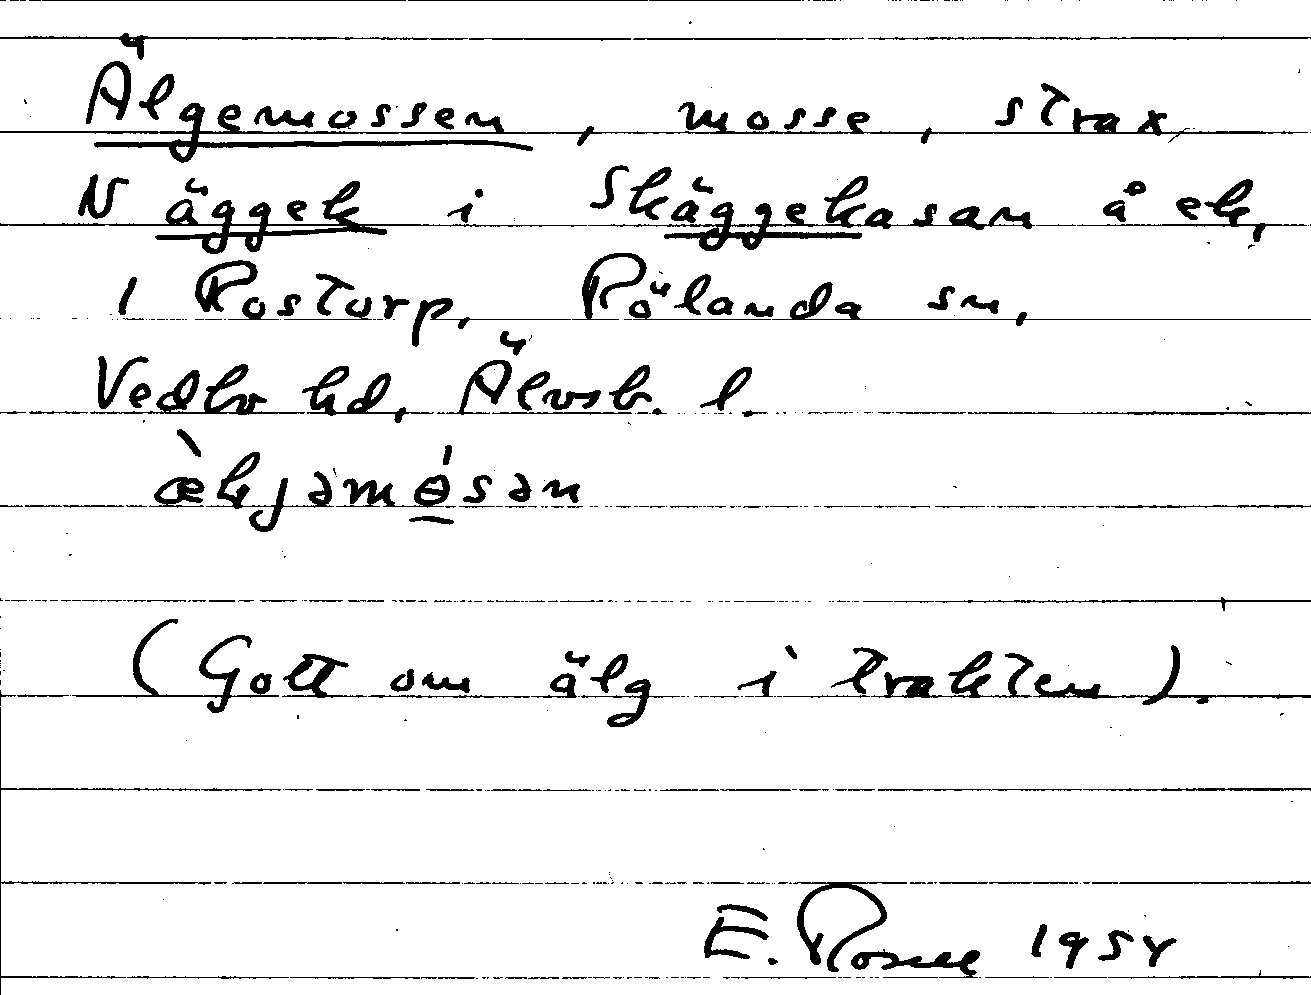 Älgemossen, mosse, strax
N äggek i Skäggekasan å ek,
1 Rostorp, Rölanda sn,
Vedbo hd, Älvsb. l.
(Gott om älg i trakten).
E. 195